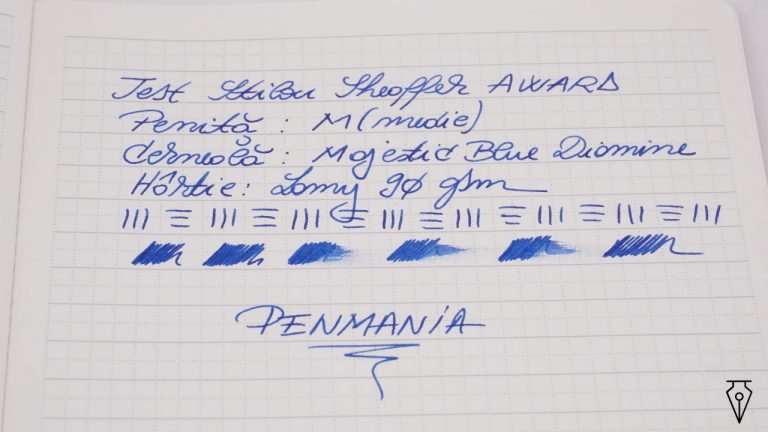 Test Stilou Sheaffer AWARD
Peniță : M (medie)
Cerneală : Majestic Blue Diamine
Hârtie: Lamy 90 gsm
PENMANIA